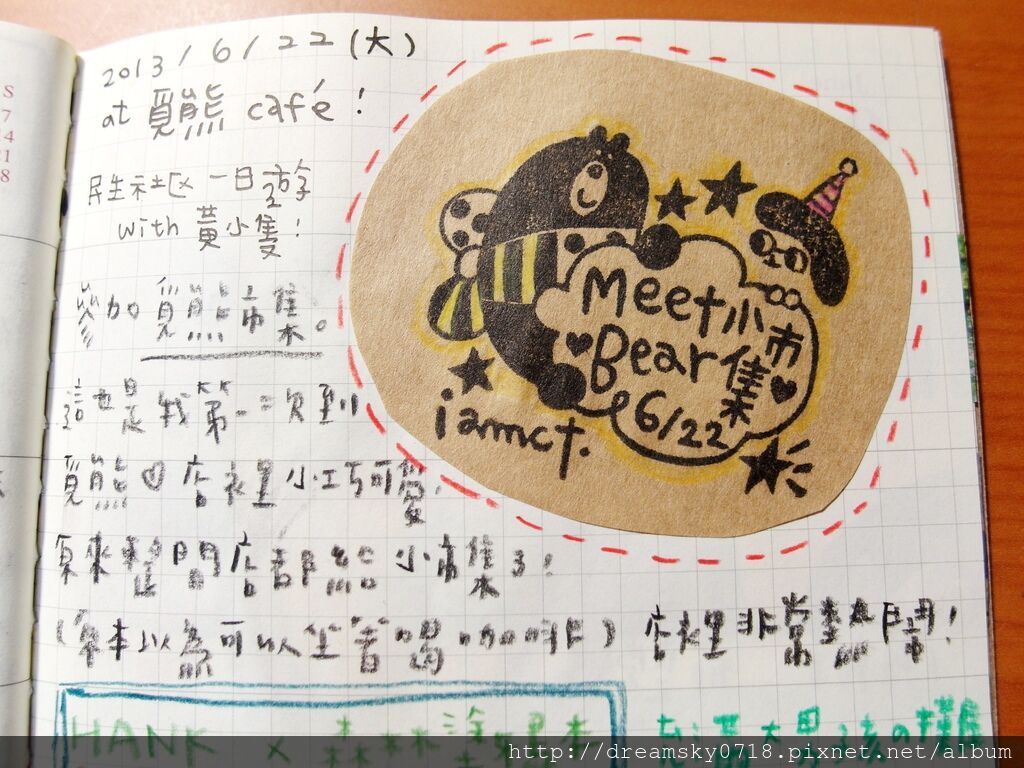 2013/6/22(大)
at 覓熊 café!
民生社區一日遊
with 黃小隻!
參加 覓熊市集。
這也是我第一次到
覓熊♡店裡小巧可愛,
原來整間店都給小市集了!
(原本以為可以坐著喝咖啡) 店裡非常熱鬧!
Meet小市集
Bear
6/22
iamct.
HANK x 森林塗鴉
S
7
14
21
28
http://dreamsky0718.pixnet.net/album